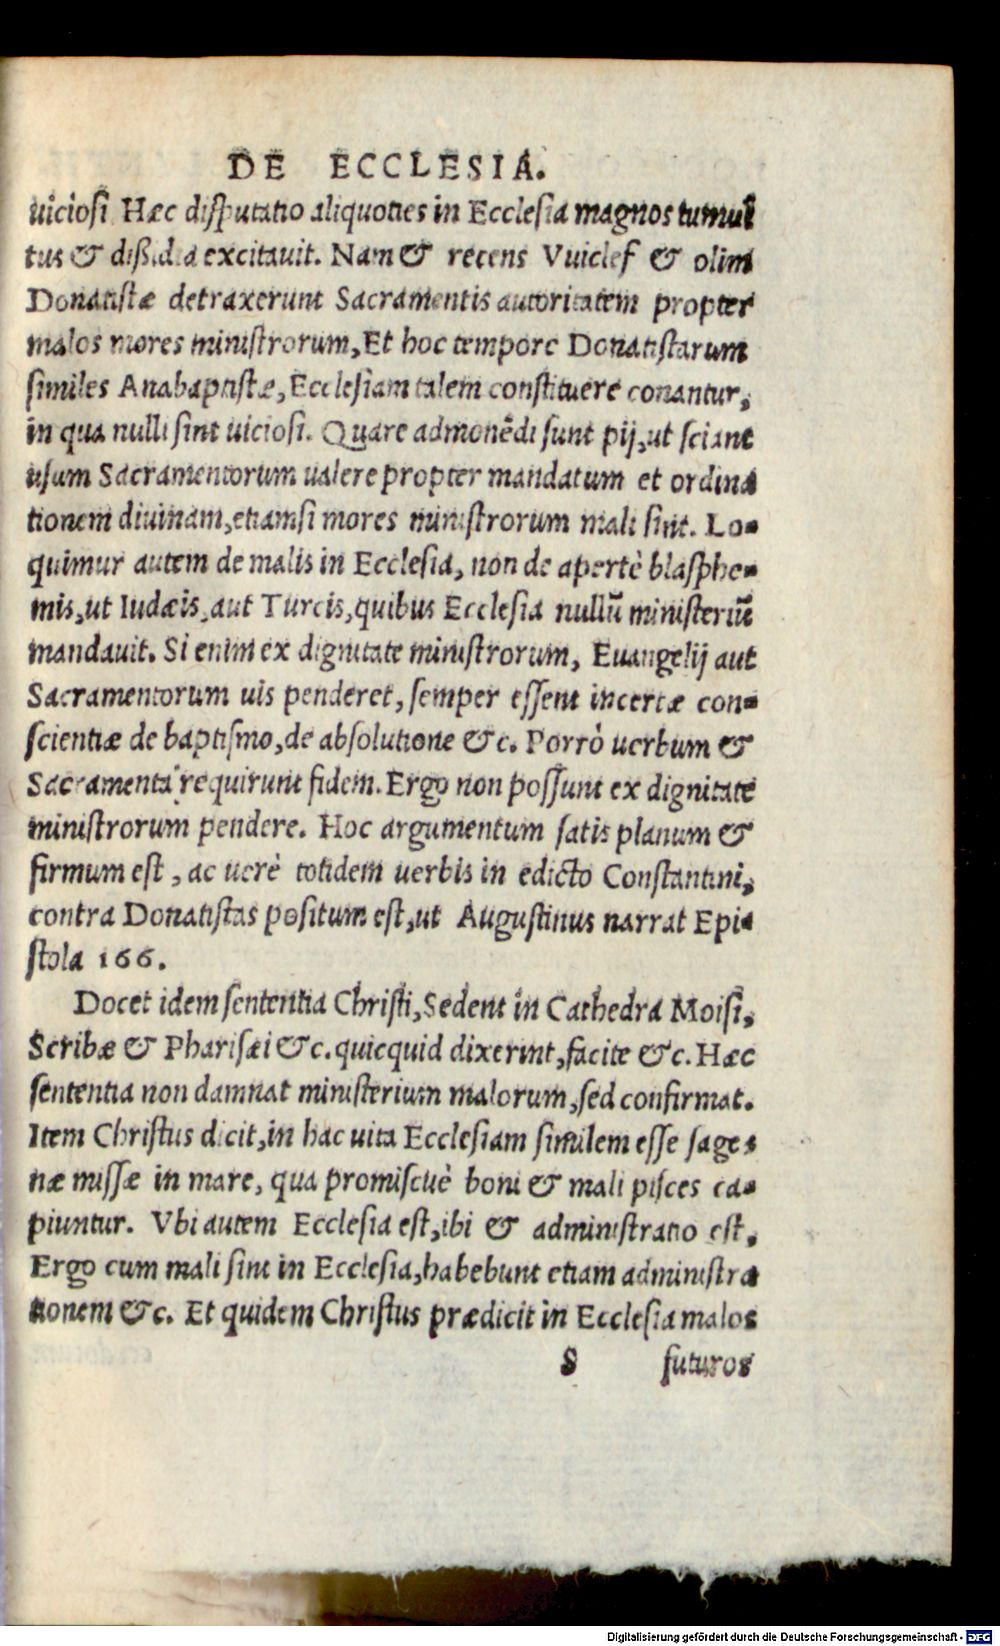 DE ECCLESIA.
uiciosi Hæc disputatio aliquoties in Ecclesia magnos tumul
tus & dißidia excitauit. Nam & recens Vuiclef & olim
Donatistæ detraxerunt Sacramentis autoritatem propter
malos mores ministrorum, Et hoc tempore Donatistarum
similes Anabaptistæ, Ecclesiam talem constituere conantur,
in qua nulli sint uiciosi. Quare admonẽdi sunt pij, ut sciant
usum Sacramentorum ualere propter mandatum et ordina
tionem diuinam, etiamsi mores ministrorum mali sint. Lo-
quimur autem de malis in Ecclesia, non de apertè blasphe-
mis, ut Iudæis, aut Turcis, quibus Ecclesia nullũ ministeriũ
mandauit. Si enim ex dignitate ministrorum, Euangelij aut
Sacramentorum uis penderet, semper essent incertæ con-
scientiæ de baptismo, de absolutione &c. Porrò uerbum &
Sacramenta requirunt fidem. Ergo non possunt ex dignitate
ministrorum pendere. Hoc argumentum satis planum &
firmum est, ac uerè totidem uerbis in edicto Constantini,
contra Donatistas positum est, ut Augustinus narrat Epi-
stola 166.
Docet idem sententia Christi, Sedent in Cathedra Moisi,
Scribæ & Pharisæi &c. quicquid dixerint, facite &c. Hæc
sententia non damnat ministerium malorum, sed confirmat.
Item Christus dicit, in hac uita Ecclesiam similem esse sage-
næ missæ in mare, qua promiscuè boni & mali pisces ca-
piuntur. Vbi autem Ecclesia est, ibi & administratio est,
Ergo cum mali sint in Ecclesia, habebunt etiam administra
tionem &c. Et quidem Christus prædicit in Ecclesia malos
S futuros
Digitalisierung gefördert durch die Deutsche Forschungsgemeinschaft - DFG